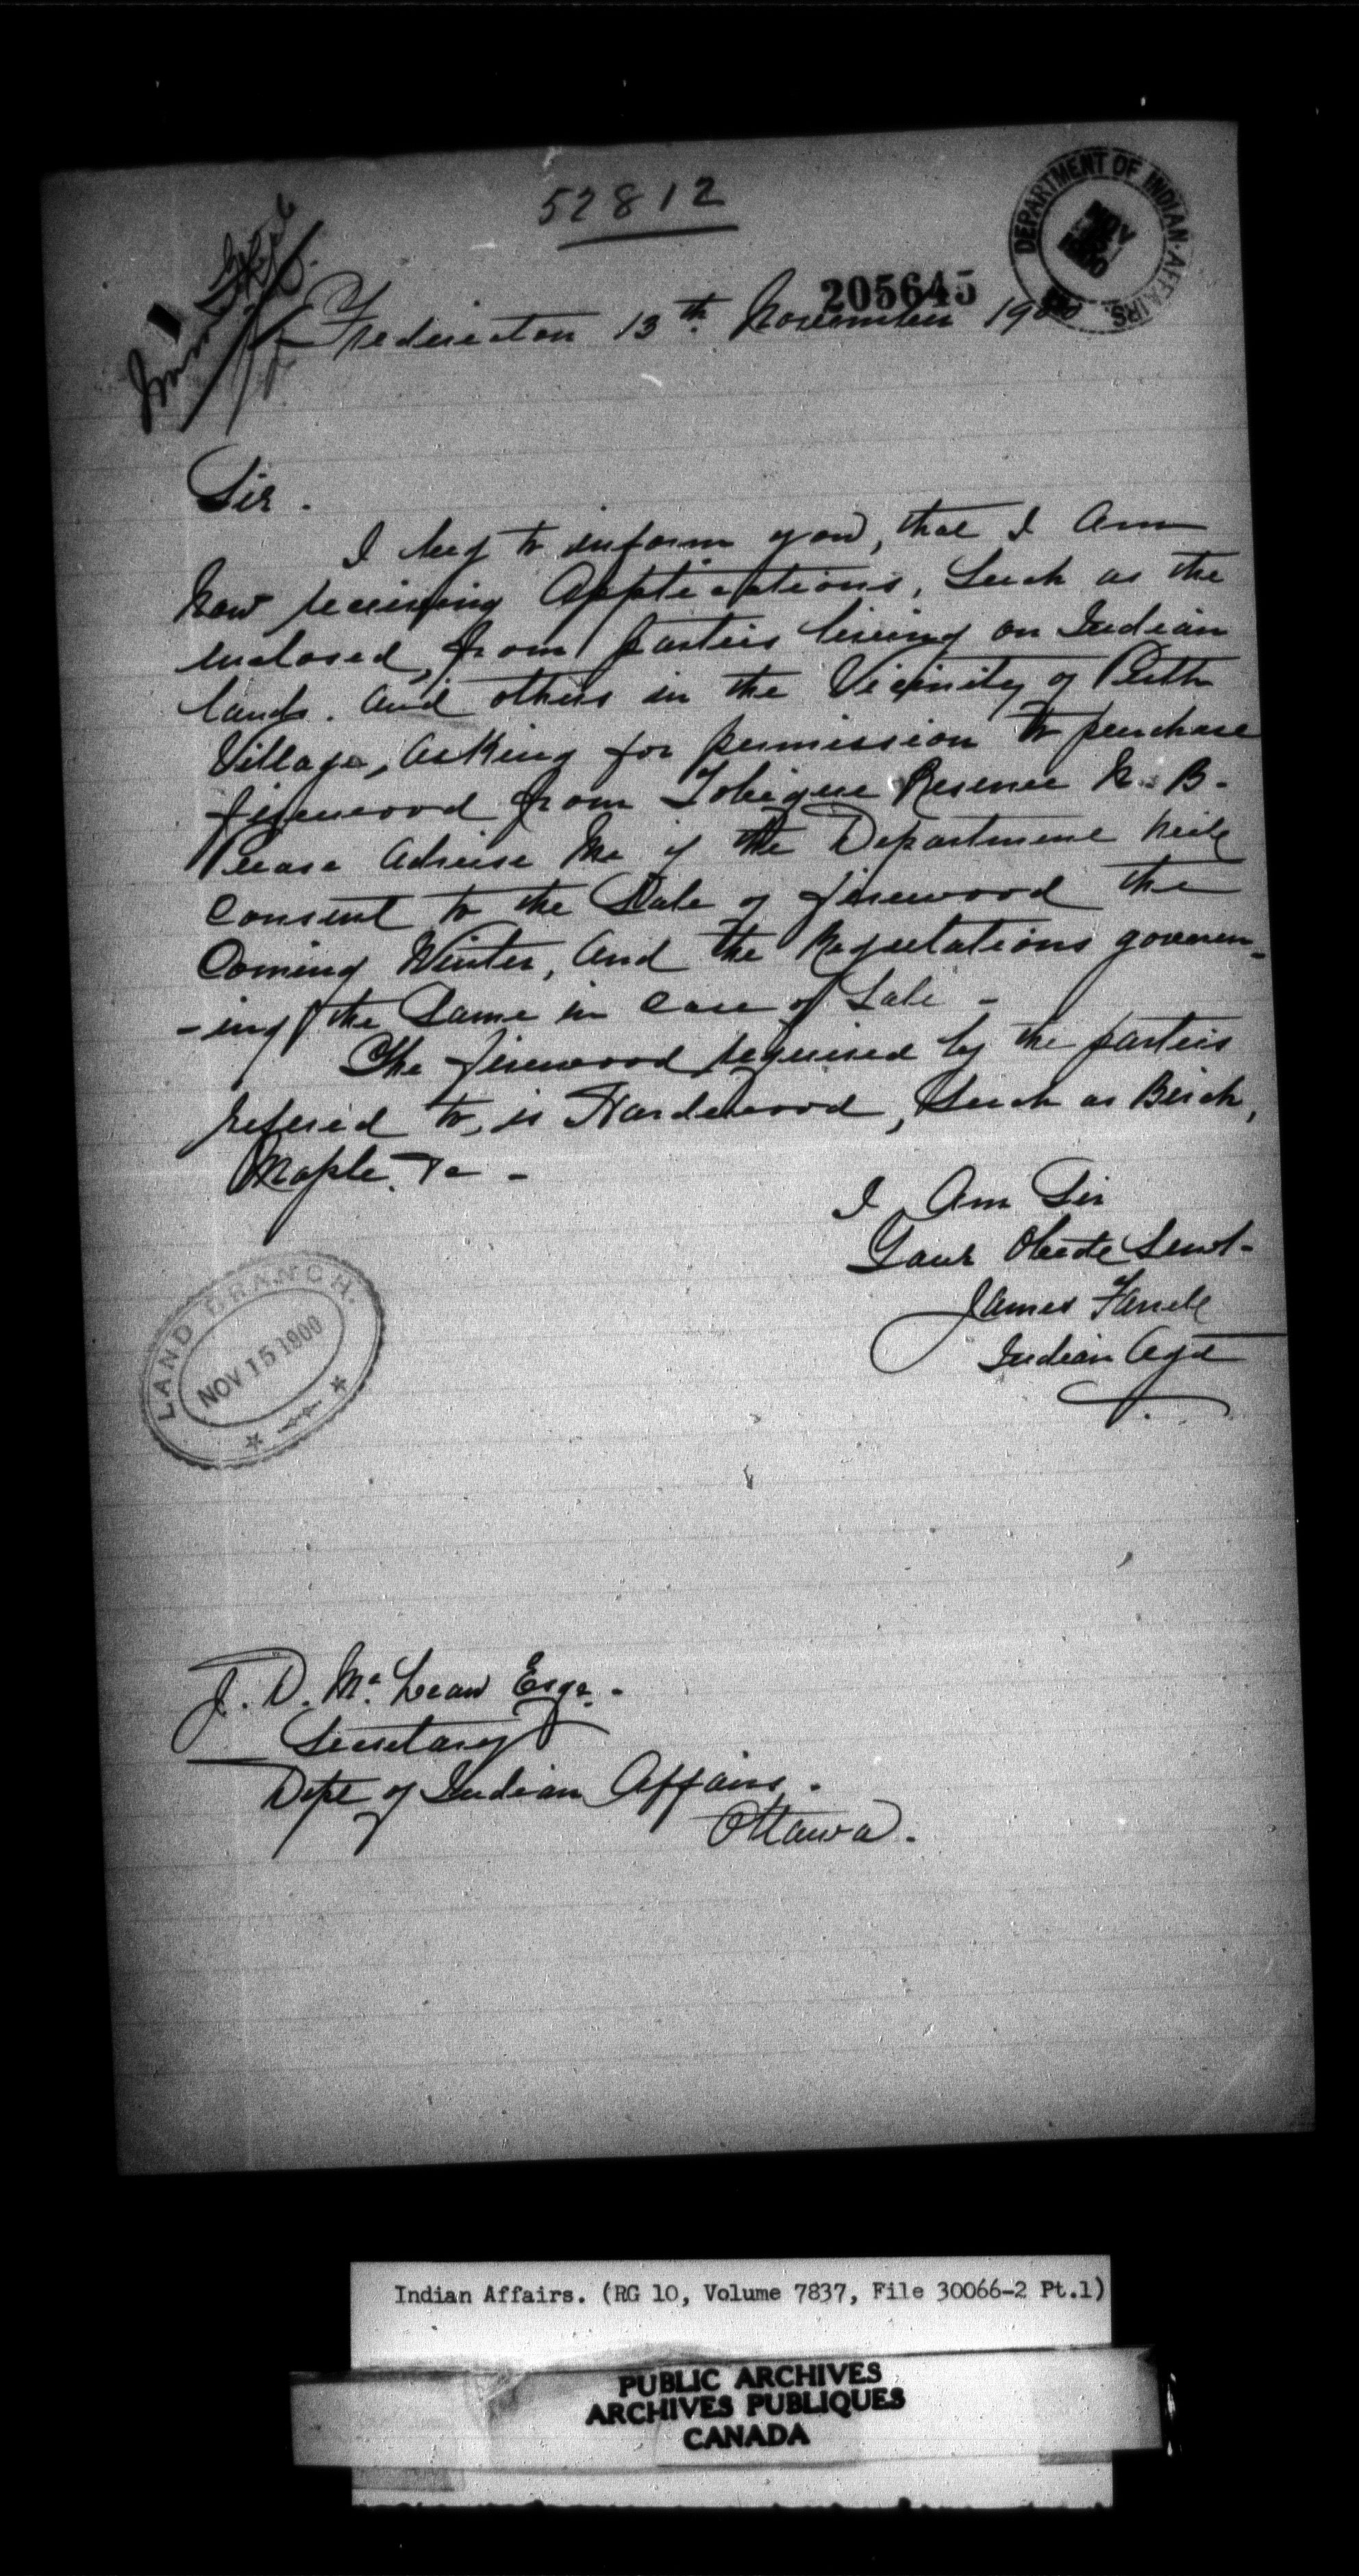 52812
DEPARTMENT OF INDIAN AFFAIRS.
NOV
1900
205645
Fredericton 13th November 1900
Sir.
I beg to inform you, that I am
now receiving applications, such as the
enclosed, from parties living on Indian
lands. and others in the Vicinity of Perth
Village, asking for permission to purchase
firewood from Tobique Reserve N. B.
Please advise me if the Department will
consent to the Sale of firewood the
Coming Winter, and the Regulations governn-
-ing the Same in case of Sale -
The firewood required by the parties
refered to, is Hardewood, such as Birch,
Maple. &c -
I Am Sir
Your Obedt Servt-
James Farrell
Indian Agt
LAND BRANCH.
NOV 15 1900
J. D. Mc Lean Esqr.
Secretary
Dept of Indian Affairs.
Ottawa.
Indian Affairs. (RG 10, Volume 7837, File 30066-2 Pt.1)
PUBLIC ARCHIVES
ARCHIVES PUBLIQUES
CANADA